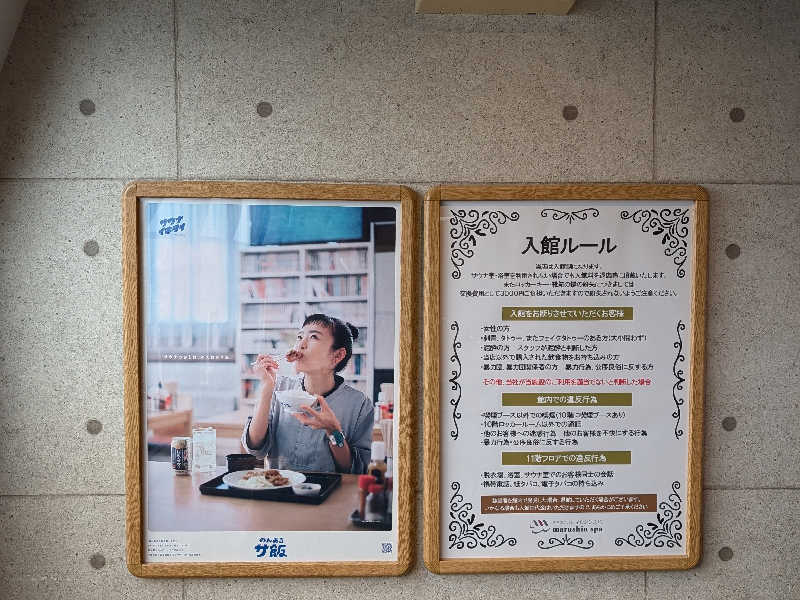 サウナ
イキタイ
のんあるサ飯
入館ルール
サウナ室・浴室を利用されない場合でも入館料を
入館をお断りさせていただくお客様
・女性の方
・刺青、タトゥー、またフェイクタトゥーのある方(大小問わず)
・泥酔の方 スタッフが泥酔と判断した方
・当店以外で購入された飲食物をお持ち込みの方
・暴力団、暴力団関係者の方 暴力行為、公序良俗に反する方
その他、当社が当施設のご利用を適当でないと判断した場合
館内での違反行為
・喫煙ブース以外での喫煙(10階に喫煙ブースあり)
・10階ロッカールーム以外での通話
・他のお客様への迷惑行為 他のお客様を不快にする行為
・暴力行為・公序良俗に反する行為
11階フロアでの違反行為
・脱衣場、浴室、サウナ室でのお客様同士の会話
・携帯電話、紙タバコ、電子タバコの持ち込み
marushin spa